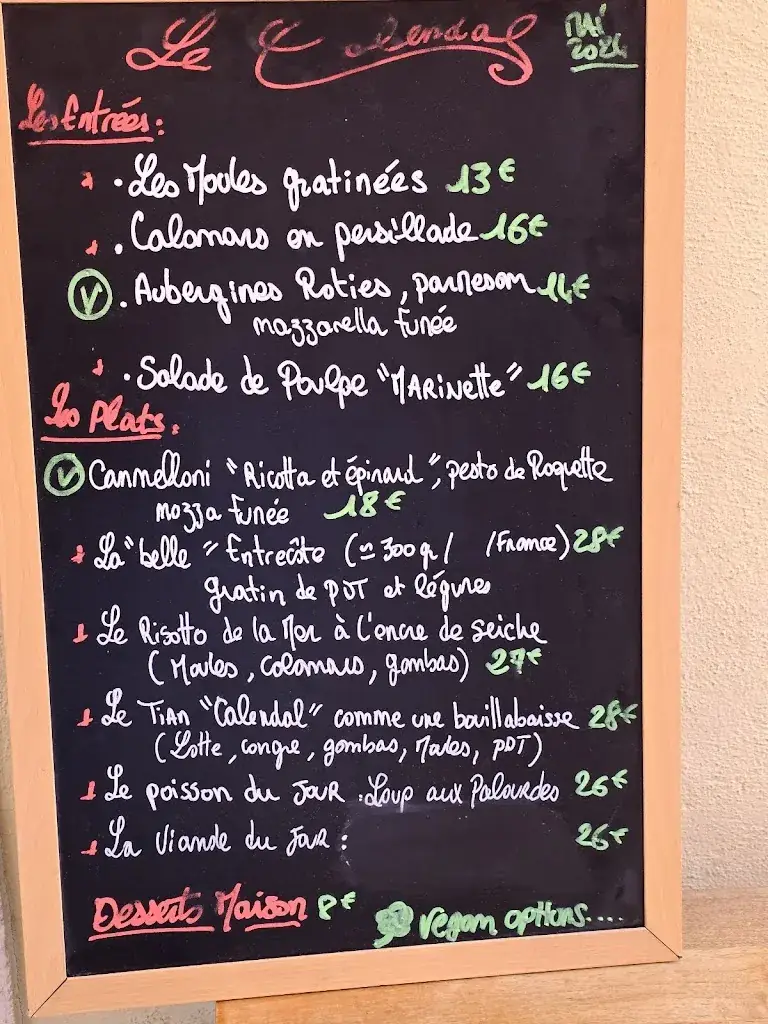 Le Calendal
MAI
2024
Les Entrées :
. Les Moules gratinées 13€
. Calamars en persillade 16€
V . Aubergines Roties, parmesan 14€
mozzarella fumée
. Salade de Poulpe "MARiNette" 16€
Les Plats :
V Cannelloni "Ricotta et épinard", pesto de Roquette
mozza fumée 18€
La "belle" Entrecôte (≃ 300 gr / /France) 28€
gratin de PDT et légumes
Le Risotto de la Mer à l'encre de seiche
(Moules, calamars, gambas) 27€
Le Tian "Calendal" comme une bouillabaisse 28€
(Lotte, congre, gambas, Moules, PDT)
Le poisson du Jour : Loup aux Palourdes 26€
La Viande du Jour : 26€
Desserts Maison 8€
vegan options....